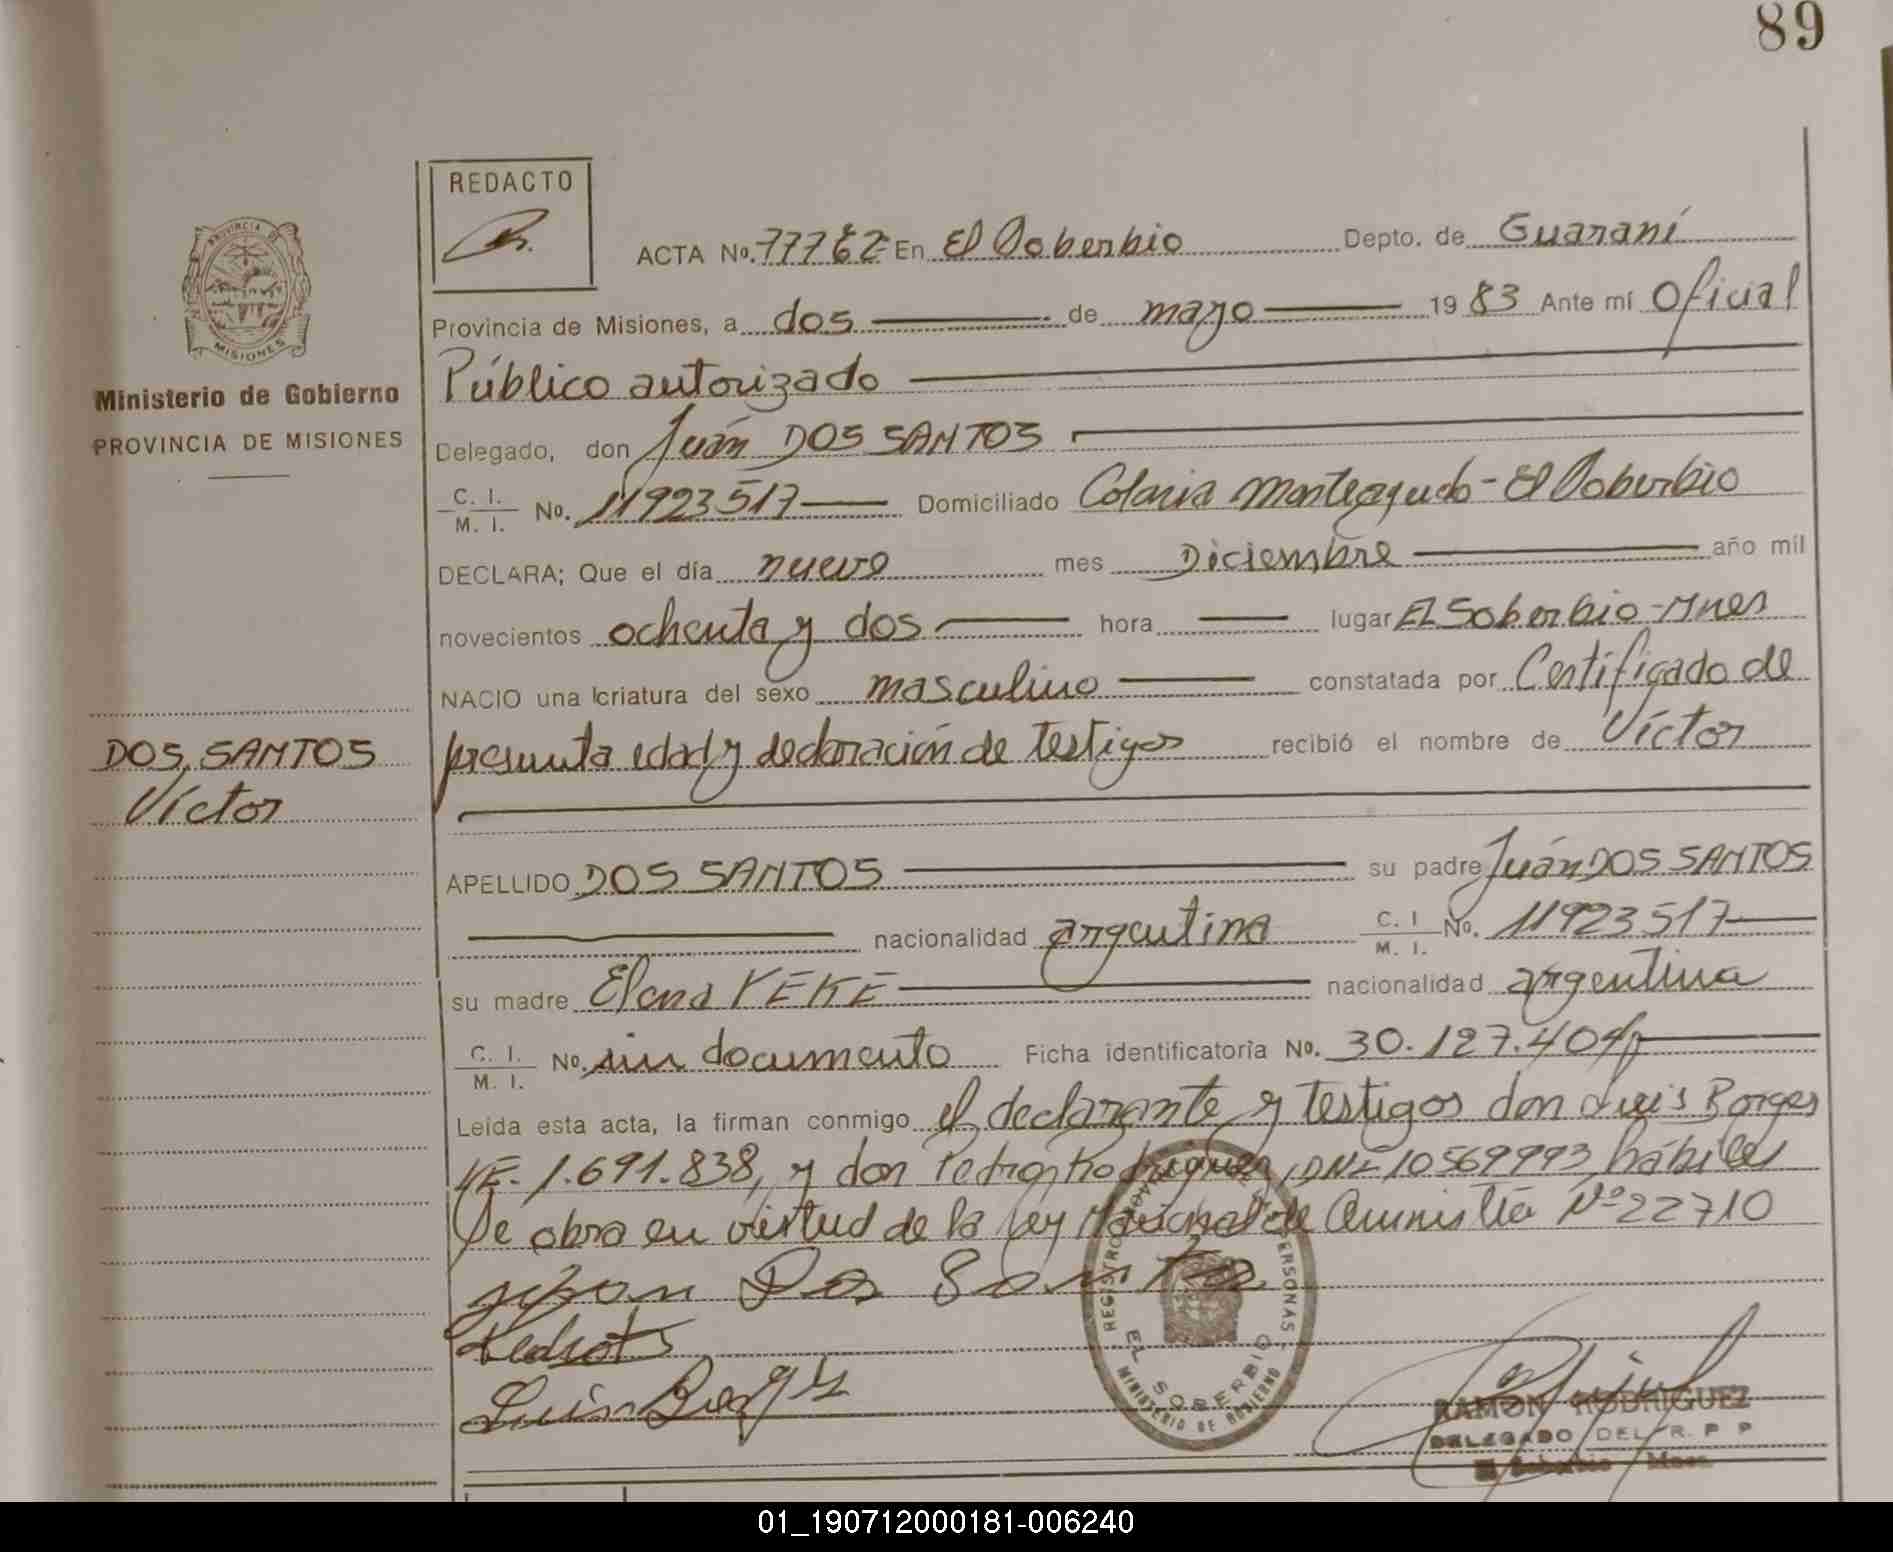 89
REDACTO
ACTA No. 77762 En El Soberbio Depto. de Guaraní
Provincia de Misiones, a dos de mayo 1983 Ante mí Oficial
Público autorizado
PROVINCIA DE
MISIONES
Ministerio de Gobierno
PROVINCIA DE MISIONES
Delegado, don Juán DOS SANTOS
C. I.
M. I. No. 11923517 Domiciliado Colonia Monteagudo - El Soberbio
DECLARA; Que el día nueve mes Diciembre año mil
novecientos ochenta y dos hora lugar El Soberbio - Mnes
NACIO una criatura del sexo masculino constatada por Certificado de
DOS SANTOS
Víctor
presunta edad y declaración de testigos recibió el nombre de Víctor
APELLIDO DOS SANTOS su padre Juán DOS SANTOS
nacionalidad argentina C. I. M. I. No. 11923517
su madre Elena nacionalidad argentina
C. I.
M. I. No. sin documento Ficha identificatoria No. 30.127.404
Leida esta acta, la firman conmigo el declarante y testigos don Luis Borges
1.691.838, y don Pedro Rodríguez, DNI 10569993, hábiles
Se obra en virtud de la Ley Nacional de Amnistía Nº 22710
Dos Santos
Luis Borges
REGISTRO PROVINCIAL PERSONAS
EL SOBERBIO
MINISTERIO DE GOBIERNO
RAMON RODRIGUEZ
DELEGADO DEL R. P P
El Soberbio Mnes.
01_190712000181-006240